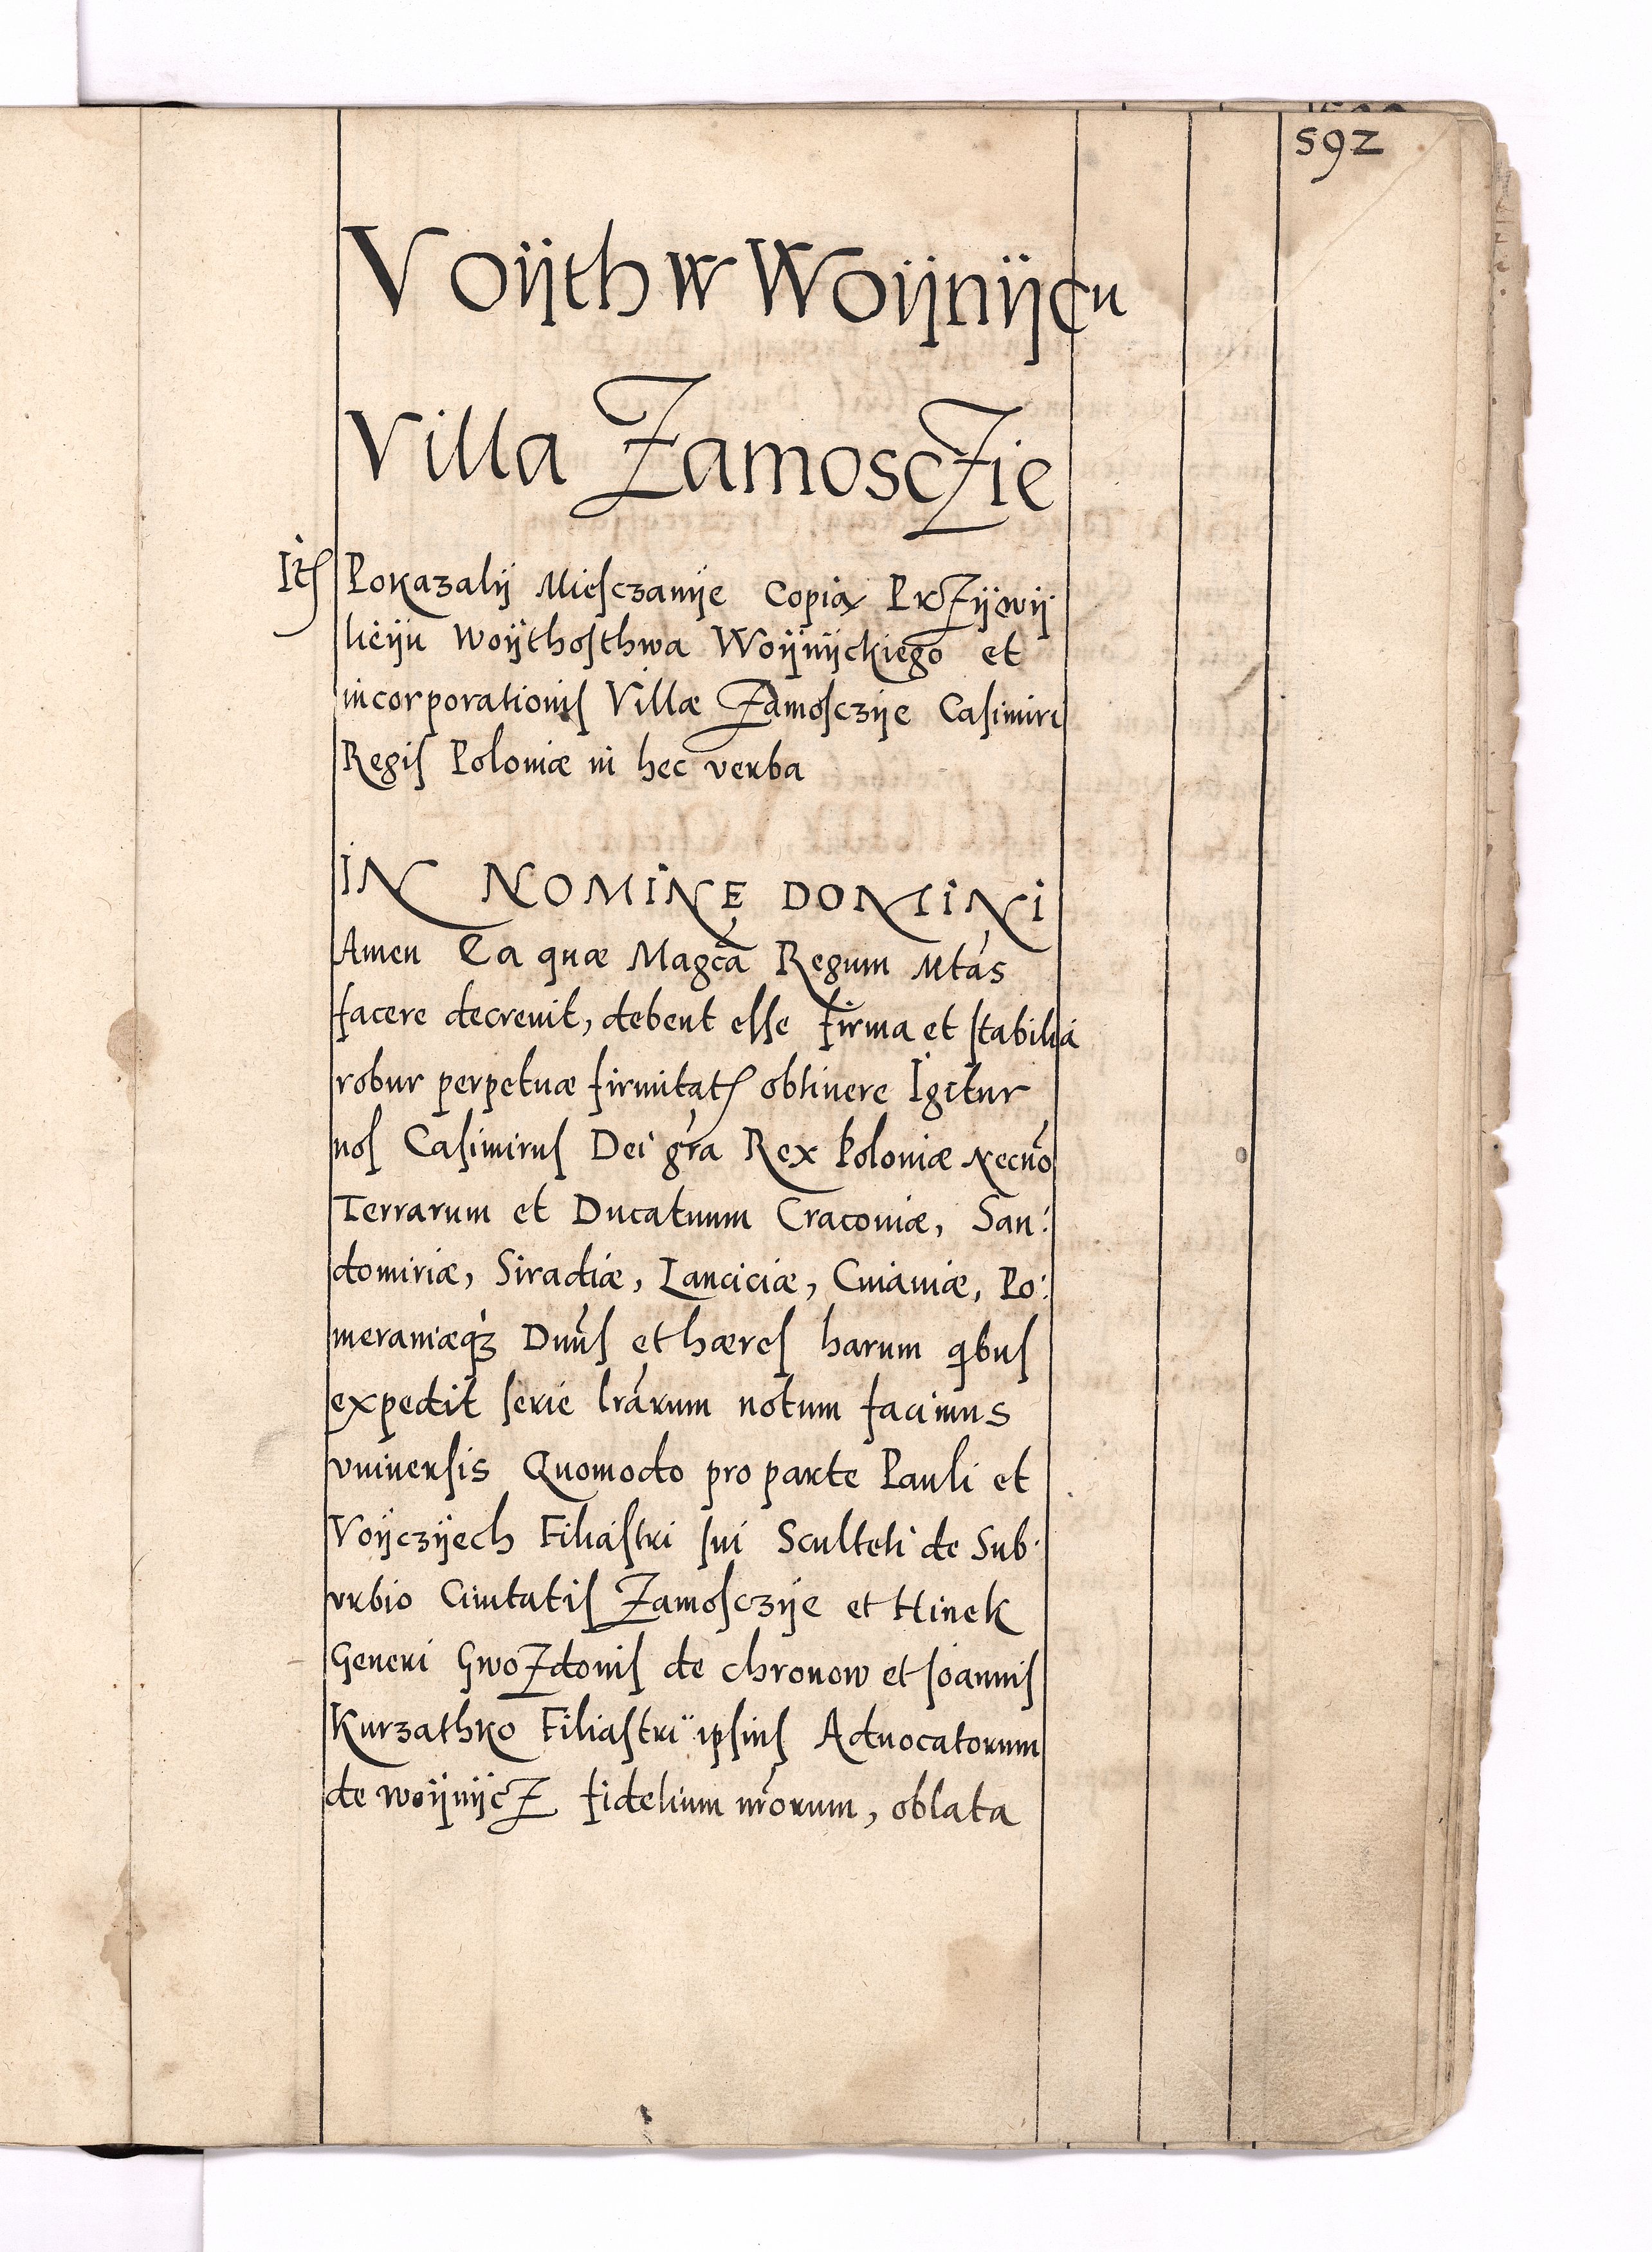 592
Voÿth w Woÿnÿcu
Villa Zamosczie
Itꝭ Pokazalÿ Mieſczanÿe Copią Przÿwÿ
lieÿu Woÿthoſthwa Woÿnÿckiego et
incorporationiſ Villæ Zamoſczÿe Caſimiri
Regiſ Poloniæ in hec verba
IN NOMINE DOMINI
Amen Ea quæ Magc̃a Regum Mtás
facere decreuit, debent eſſe firma et ſtabilia
robur perpetuæ firmitatꝭ obtinere Igitur
noſ Caſimiruſ Dei gr̃a Rex Poloniæ Necnõ
Terrarum et Ducatuum Cracoviæ, San:
domiriæ, Siradiæ, Lanciciæ, Cuiauiæ, Po:
meraniæqꝫ Dnuſ̃ et hæreſ harum qibuſ
expedit ſerie lrárum notum facimus
vniuerſis Quomodo pro parte Pauli et
Voÿczÿech Filiaſtri ſui Sculteti de Sub:
vrbio Ciuitatiſ Zamoſczÿe et Hinek
Generi Gwozdoniſ de chronow et Joanniſ
Kurzathko Filiaſtri ipſiuſ Aduocatorum
de Woÿnÿcz fidelium nr̃orum, oblata